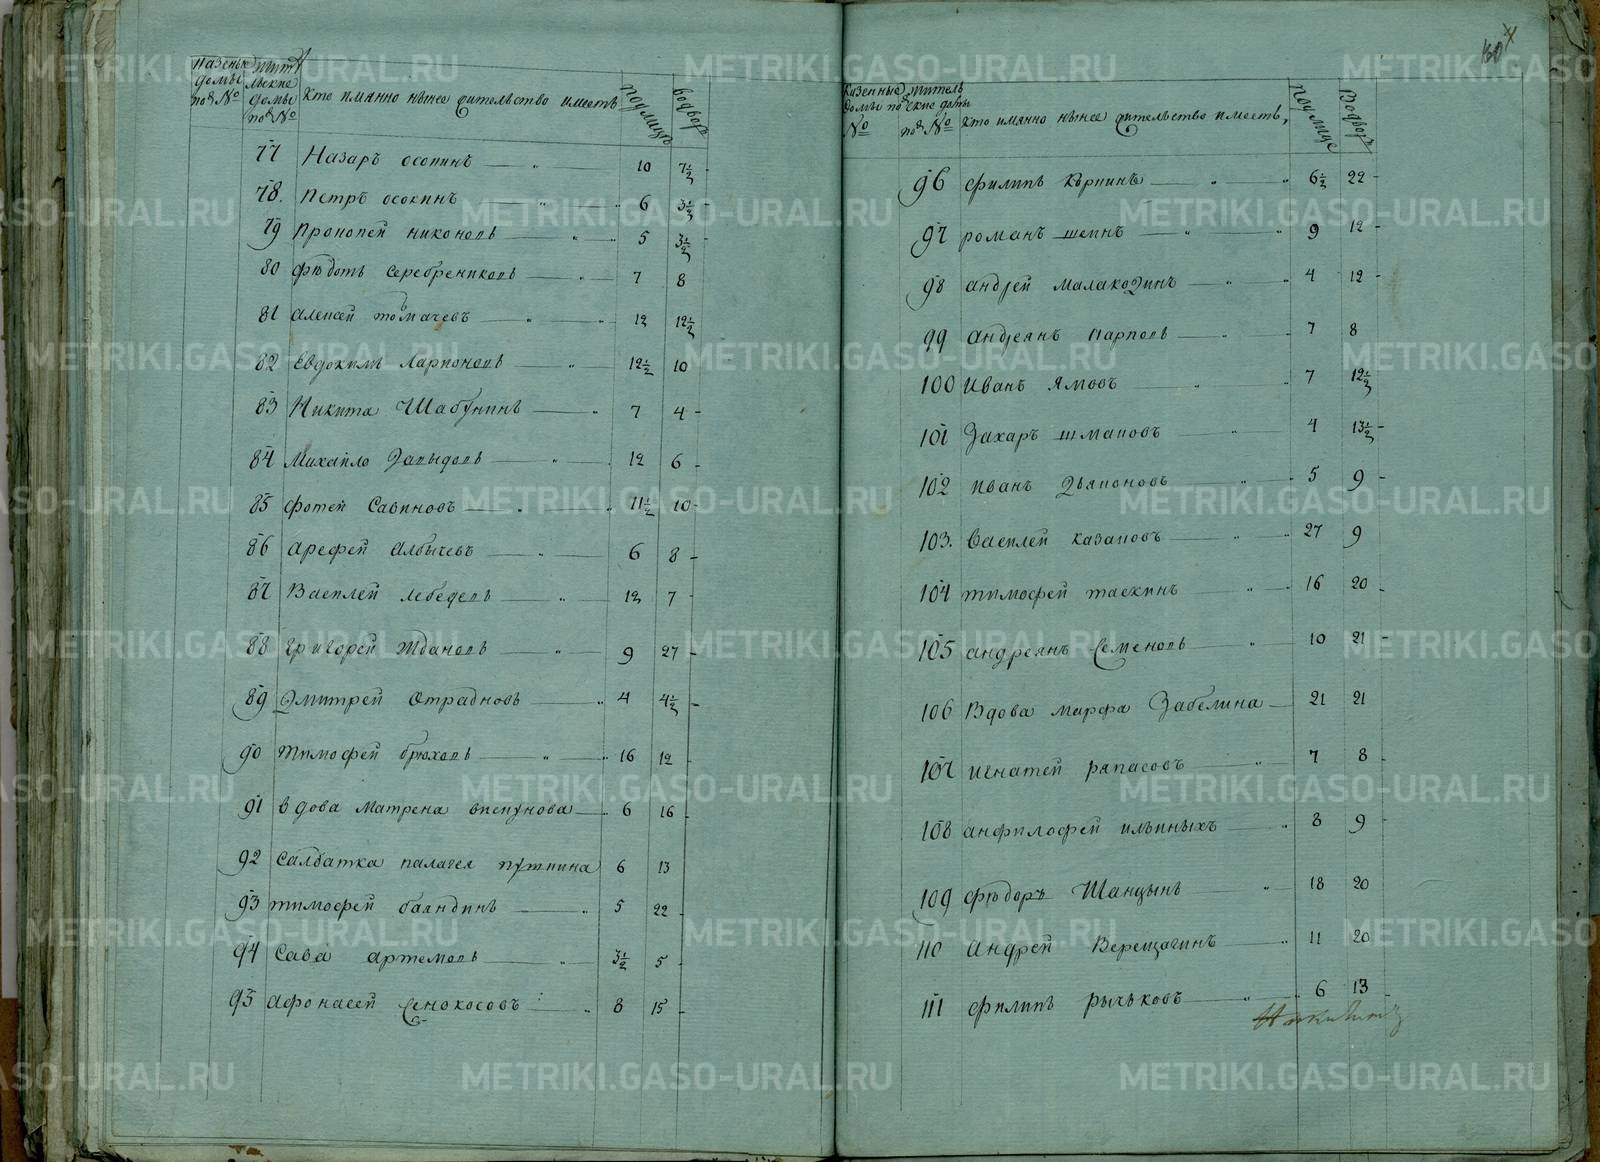 Казеные домы под № | Жительские домы под № | Кто имянно нынѣ жительство имеетъ | По улицѣ | Во дворъ
77 Назаръ осокинъ 10 7½
78. Петръ осокинъ 6 3½
79 Прокопей никоновъ 5 3½
80 Фѣдотъ Серебрениковъ 7 8
81 Алексей толмачевъ 12 12½
82 Евдокимъ Ларионовъ 12½ 10
83 Никита Шабунинъ 7 4
84 Михайло Давыдовъ 12 6
85 Фотей Савиновъ 11½ 10
86 Арефей Албычевъ 6 8
87 Василей Лебедевъ 12 7
88 Григорей Ждановъ 9 27
89 Дмитрей Отрадновъ 4 4½
90 Тимофей брюховъ 16 12
91 вдова Матрена 6 16
92 Салдатка палагея 6 13
93 тимофей баяндинъ 5 22
94 Сава Артемовъ 3½ 5
95 Афонасей Сенокосовъ 8 15
Казенные домы № | Жительские домы под № | Кто имянно нынѣ жительство имеетъ, | По улице | Во дворъ
96 Филипъ 6½ 22
97 романъ шеинъ 9 12
98 андрей Малахов 4 12
99 Андреянъ карповъ 7 8
100 Иванъ Ямовъ 7 12½
101 Захаръ шмаковъ 4 13½
102 Иванъ Дьяконовъ 5 9
103. Василей казаковъ 27 9
104 тимофей таскинъ 16 20
105 андреянъ Семеновъ 10 21
106 Вдова марфа Забелина 21 21
107 игнатей 7 8
108 анфилофей ильиныхъ 8 9
109 Фѣдоръ Шанцынъ 18 20
110 Андрей Верещагинъ 11 20
111 Филипъ Рычьковъ 6 13
METRIKI.GASO-URAL.RU